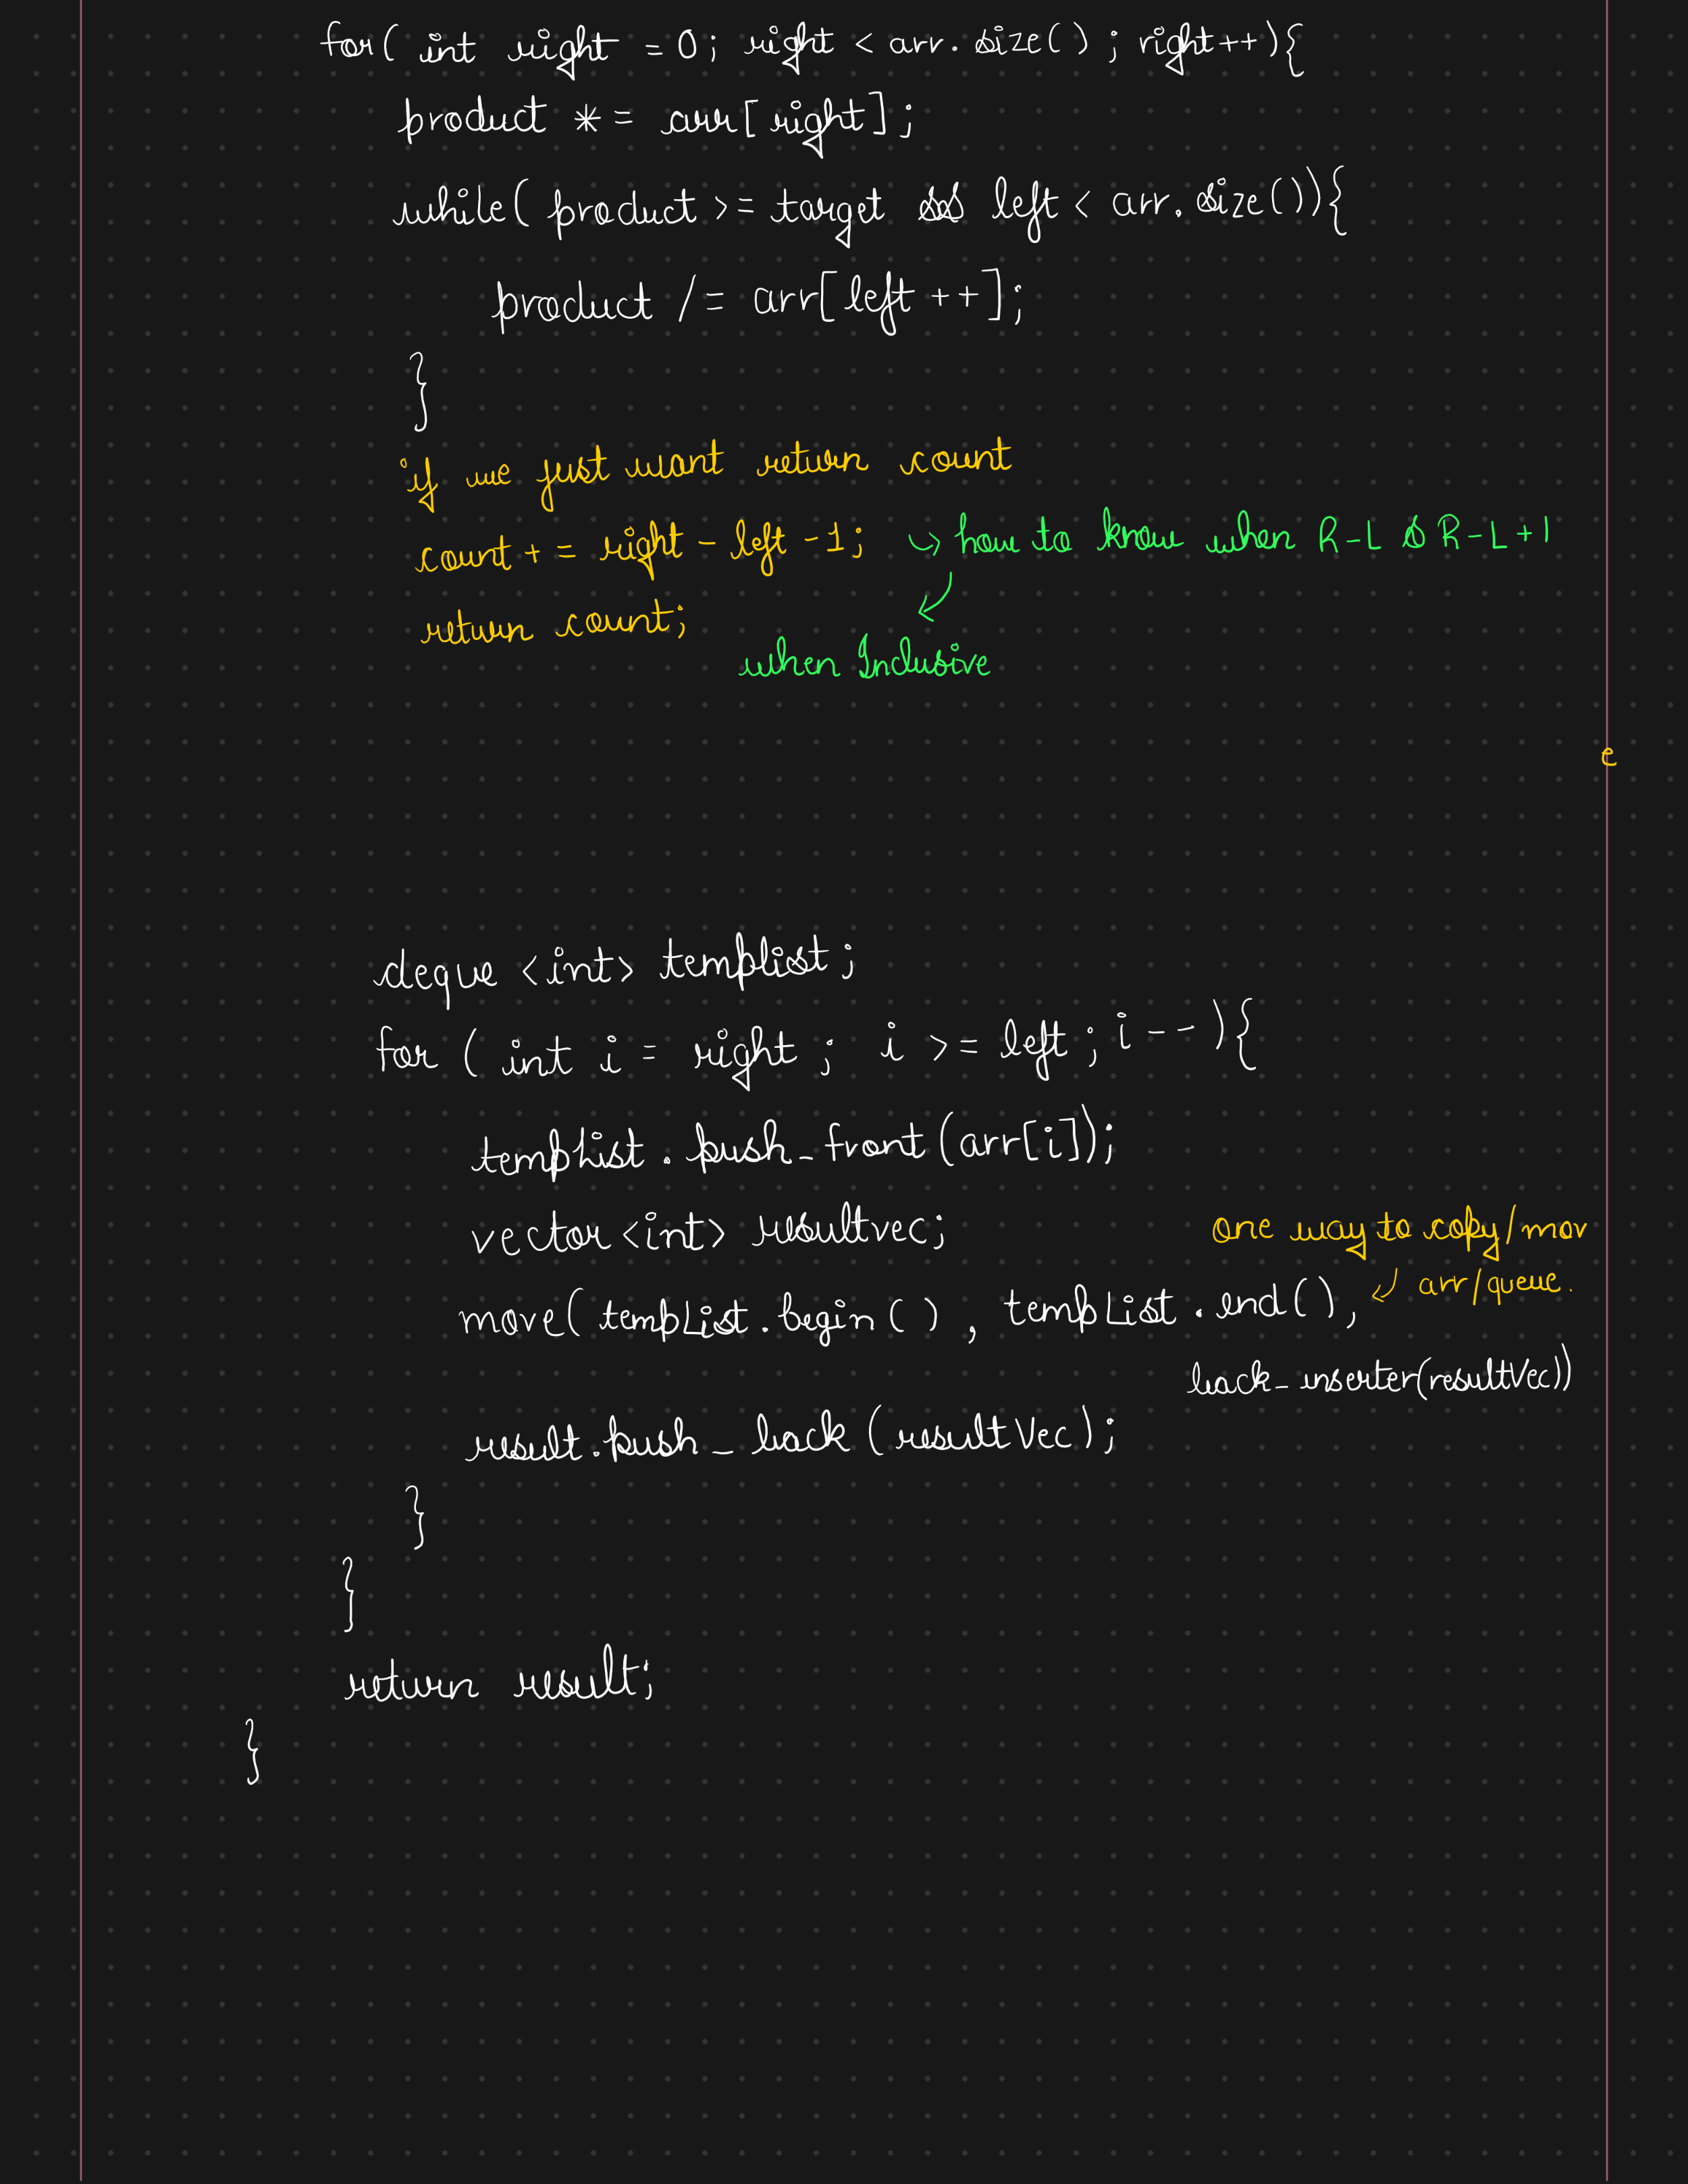 for( int right = 0; right < arr. size() ; right++){
product *= arr[right];
while( product >= target && left < arr. size()){
product /= arr[left ++];
}
if we just want return count
count += right - left -1; ↳ how to know when R-L & R-L+1
↙
return count;
when Inclusive
e
deque <int> templist;
for ( int i = right ; i >= left ; i -- ){
tempList . push_front (arr[i]);
vector <int> resultvec;
one way to copy/mov
↲ arr/queue.
move( tempList . begin () , tempList . end() ,
back_inserter(resultVec))
result.push_back (resultVec);
}
}
return result;
}